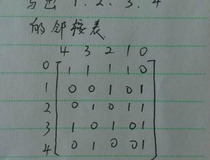 写出 1. 2. 3. 4
的邻接表
4 3 2 1 0
0 1 1 1 1 0
1 0 0 1 0 1
2 0 1 0 1 1
3 1 0 1 0 1
4 0 1 0 0 1